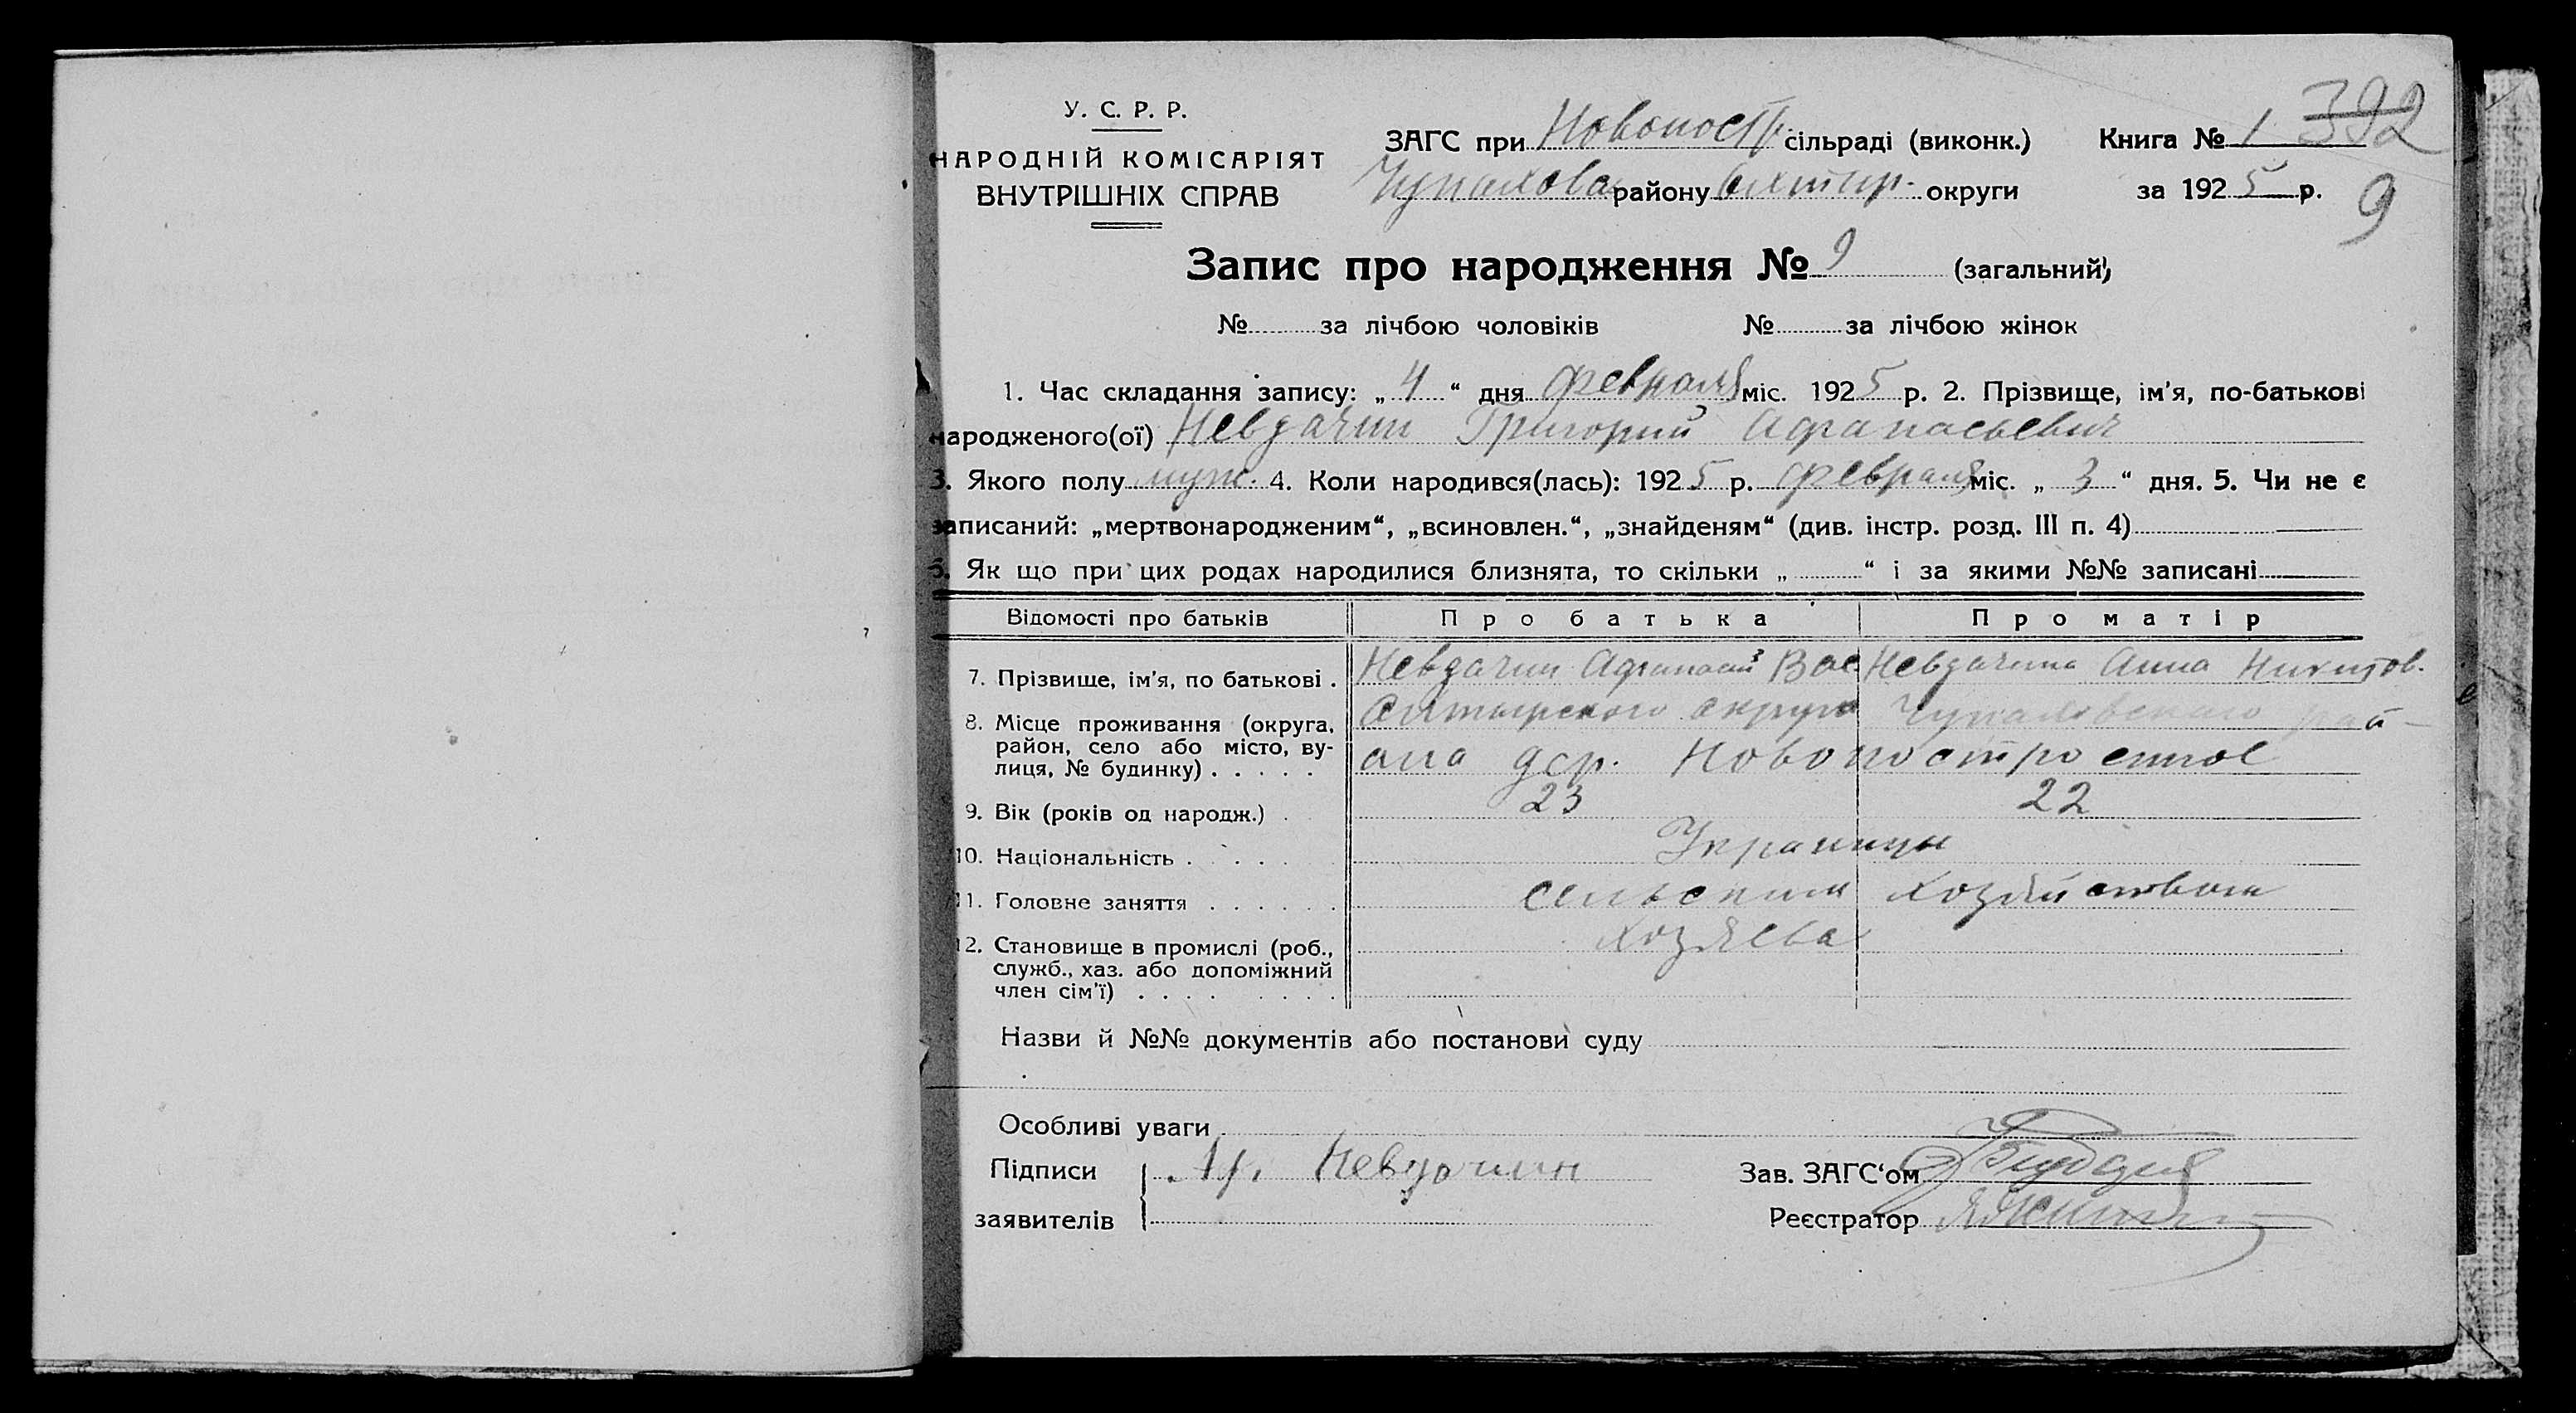 У. С. Р. Р.
НАРОДНІЙ КОМІСАРІЯТ
ВНУТРІШНІХ СПРАВ
ЗАГС при Новопостр. сільраді (виконк.) Книга № 1 392
Чупахова району Ахтир. округи за 1925 р. 9
Запис про народження № 9 (загальний)
№ за лічбою чоловіків № за лічбою жінок
1. Час складання запису: „ 4 “ дня февраля міс. 1925 р. 2. Прізвище, ім'я, по-батькові
народженого(ої) Невдачин Григорий Афанасьевич
3. Якого полу муж. 4. Коли народився(лась): 1925 р. февраля міс. „ 3 “ дня. 5. Чи не є
записаний: „мертвонародженим“, „всиновлен.“, „знайденям“ (див. інстр. розд. III п. 4)
6. Як що при цих родах народилися близнята, то скільки „ “ і за якими №№ записані
Відомості про батьків Про батька Про матір
7. Прізвище, ім'я, по батькові . Невдачин Афанасий Вас Невдачина Анна Никитов.
8. Місце проживання (округа, Ахтырского округа Чупаховского рай-
район, село або місто, ву-
лиця, № будинку) . . . . . она дер. Новопостроенное
9. Вік (років од народж.) . 23 22
10. Національність . . . . . Украинцы
11. Головне заняття . . . . . . сельским хозяйством
12. Становище в промислі (роб., хозяева
служб., хаз. або допоміжний
член сім'ї) . . . . . . . .
Назви й №№ документів або постанови суду
Особливі уваги
Підписи Невдачин Зав. ЗАГС‘ом
заявителів Реєстратор